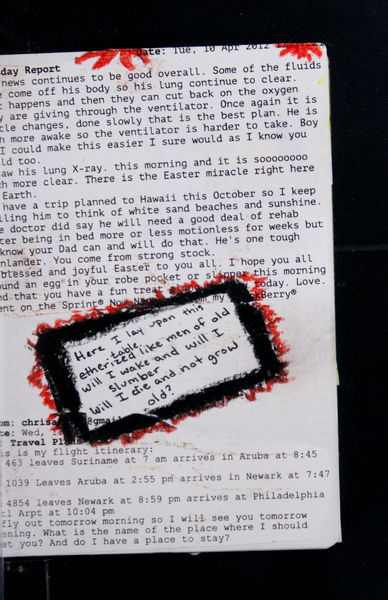 Date: Tue, 10 Apr 2012
day Report
news continues to be good overall. Some of the fluids
come off his body so his lung continue to clear.
happens and then they can cut back on the oxygen
are giving through the ventilator. Once again it is
changes, done slowly that is the best plan. He is
more awake so the ventilator is harder to take. Boy
I could make this easier I sure would as I know you
ld too.
aw his lung X-ray. this morning and it is soooooooo
more clear. There is the Easter miracle right here
Earth.
have a trip planned to Hawaii this October so I keep
lling him to think of white sand beaches and sunshine.
doctor did say he will need a good deal of rehab
ter being in bed more or less motionless for weeks but
know your Dad can and will do that. He's one tough
nlander. You come from strong stock.
blessed and joyful Easter to you all. I hope you all
und an egg in your robe pocket or slipper this morning
nd that you have a fun treat today. Love.
ent on the Sprint® Now my kBerry®
Here I lay upon this
etheritable
etherized like men of old
will I wake and will I
slumber
Will I die and not grow
old?
om: chris @gmai
te: Wed,
Travel Pl
is is my flight itinerary:
463 leaves Suriname at 7 am arrives in Aruba at 8:45
1039 Leaves Aruba at 2:55 pm arrives in Newark at 7:47
4854 leaves Newark at 8:59 pm arrives at Philadelphia
tl Arpt at 10:04 pm
fly out tomorrow morning so I will see you tomorrow
ening. What is the name of the place where I should
et you? And do I have a place to stay?